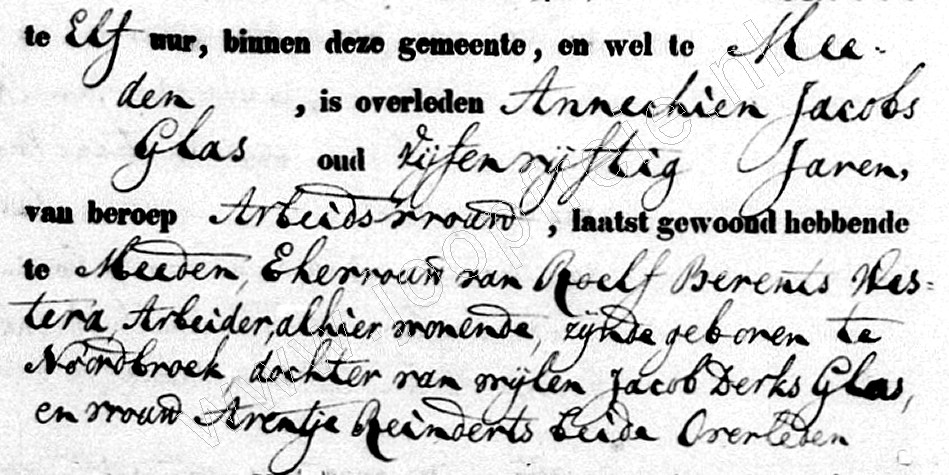 te Elf uur, binnen deze gemeente, en wel te Mee-
den , is overleden Annechien Jacobs
Glas oud Vijfenvijftig Jaren,
van beroep Arbeidsvrouw, laatst gewoond hebbende
te Meeden, Ehevrouw van Roelf Berents Wes=
tera, Arbeider, alhier wonende, zijnde geboren te
Noordbroek, dochter van wijlen Jacob Derks Glas,
en vrouw Arentje Reinderts beide Overleden